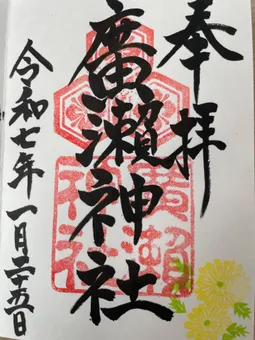 奉拝
廣瀬神社
令和七年一月二十五日
廣瀬神社